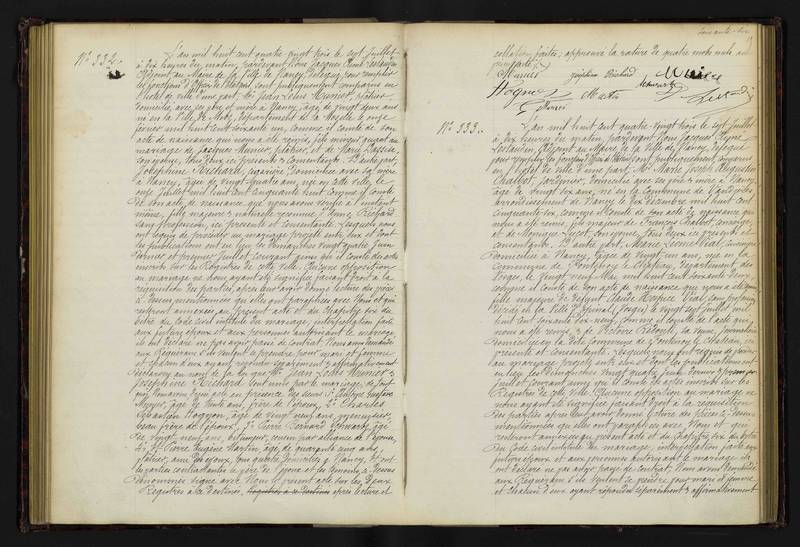 N° 332.
L'an mil huit cent quatre vingt trois le sept Juillet
à dix heures du matin, pardevant Nous Jacques René
Adjoint au Maire de la Ville de Nancy, délégué pour remplir
les fonctions d'Officier de l'Etat civil sont publiquement comparus en
l'hôtel de ville d'une part Mr Jean Louis Munier, plâtrier,
domicilié avec ses père et mère à Nancy, âgé de vingt deux ans
né en la Ville de Metz, département de la Moselle le onze
février mil huit cent soixante un, comme il conste de son
acte de naissance que nous a été remis, fils majeur quant au
mariage de Jacques Munier, plâtrier, et de Marie
son épouse, tous deux ici présents & consentants. D'autre part,
Joséphine Richard, domiciliée avec sa mère
à Nancy, âgée de vingt quatre ans, née en cette ville, le
mil huit cent cinquante huit comme il conste
de son acte de naissance que nous avons vérifié à l'instant
même, fille majeure & naturelle reconnue d'Anne Richard
sans profession, ici présente et consentante. Lesquels nous
ont requis de procéder au mariage projeté entre eux et dont
les publications ont eu lieu les Dimanches vingt quatre Juin
dernier et premier Juillet courant ainsi qu'il conste des actes
inscrits sur les Registres de cette ville. Aucune opposition
au mariage ne nous ayant été signifiée, faisant droit à la
réquisition des parties, après leur avoir donné lecture des pièces
ci dessus mentionnées qu'elles ont paraphées avec Nous et qui
resteront annexées au présent acte et du chapitre six du
titre du Code civil intitulé du mariage, interpellation faite
aux futurs époux et aux personnes autorisant le mariage
ils ont déclaré ne pas avoir passé de contrat, Nous avons demandé
aux Requérants s'ils veulent se prendre pour mari et femme
et chacun d'eux ayant répondu séparément & affirmativement
déclarons au nom de la Loi que Mr Jean Louis Munier &
Joséphine Richard sont unis par le mariage, de tout
quoi, Nous avons dressé acte en présence des sieurs 1° Philippe
âgé de trente ans, frère de l'époux, 2° Charles
Sébastien Hognon, âgé de vingt neuf ans, menuisier,
beau frère de l'époux, 3° Pierre Bernard Schwartz, âgé
de vingt neuf ans, cousin par alliance de l'époux,
4° Pierre Eugène Martin, âgé de quarante cinq ans,
plâtrier, ami des époux, tous quatre domiciliés à Nancy. Et ont
les parties contractantes, le père de l'époux et les témoins ci dessus
dénommés signé avec Nous le présent acte sur les deux
Registres à ce destinés, Registres à ce destinés après lecture et
collation faites; approuvé la rature de quatre mots nuls au
présent.
Munier Joséphine Richard Munier
Hognon Schwartz
Martin
Munier
N° 333.
L'an mil huit cent quatre vingt trois le sept Juillet
à dix heures du matin, pardevant Nous Jacques René
Adjoint au Maire de la Ville de Nancy, délégué
pour remplir les fonctions d'Officier de l'Etat civil sont publiquement comparus
en l'hôtel de ville d'une part, Mr Marie Joseph Augustin
Chatlot, jardinier, domicilié avec ses père & mère à Nancy,
âgé de vingt six ans, né en la Commune de Vandoeuvre
arrondissement de Nancy le dix Décembre mil huit cent
cinquante six, comme il conste de son acte de naissance qui
nous a été remis, fils majeur de François Chatlot
et de Monique son épouse, tous deux ici présents et
consentants. D'autre part, Marie Léonie Vial,
domiciliée à Nancy, âgée de vingt un ans, née en la
Commune de Fontenoy le Château, département des
Vosges, le vingt neuf mil huit cent soixante deux
comme il conste de son acte de naissance que nous a été remis
fille majeure de défunt Claude Hospice Vial, sans profession,
décédé en la Ville d'Epinal (Vosges) le vingt sept Juillet mil
huit cent soixante dix neuf, comme il conste de l'acte que
nous a été remis, & de Victoire sa veuve, journalière
domiciliée en la dite Commune de Fontenoy le Château, ici
présente et consentante. Lesquels nous ont requis de procéder
au mariage projeté entre eux et dont les publications ont
eu lieu les Dimanches vingt quatre Juin dernier & premier
Juillet courant ainsi qu'il conste des actes inscrits sur les
Registres de cette ville. Aucune opposition au mariage ne
nous ayant été signifiée, faisant droit à la réquisition
des parties après leur avoir donné lecture des pièces ci dessus
mentionnées qu'elles ont paraphées avec Nous et qui
resteront annexées au présent acte et du chapitre six du titre
du Code civil intitulé du mariage, interpellation faite aux
futurs époux et aux personnes autorisant le mariage ils
ont déclaré ne pas avoir passé de contrat, Nous avons demandé
aux Requérants s'ils veulent se prendre pour mari et femme
et chacun d'eux ayant répondu séparément & affirmativement